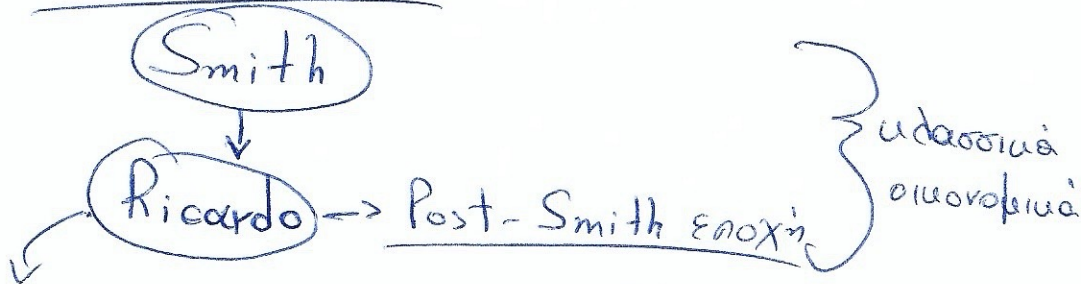 Smith
Ricardo -> Post-Smith εποχή
κλασσικά
οικονομικά